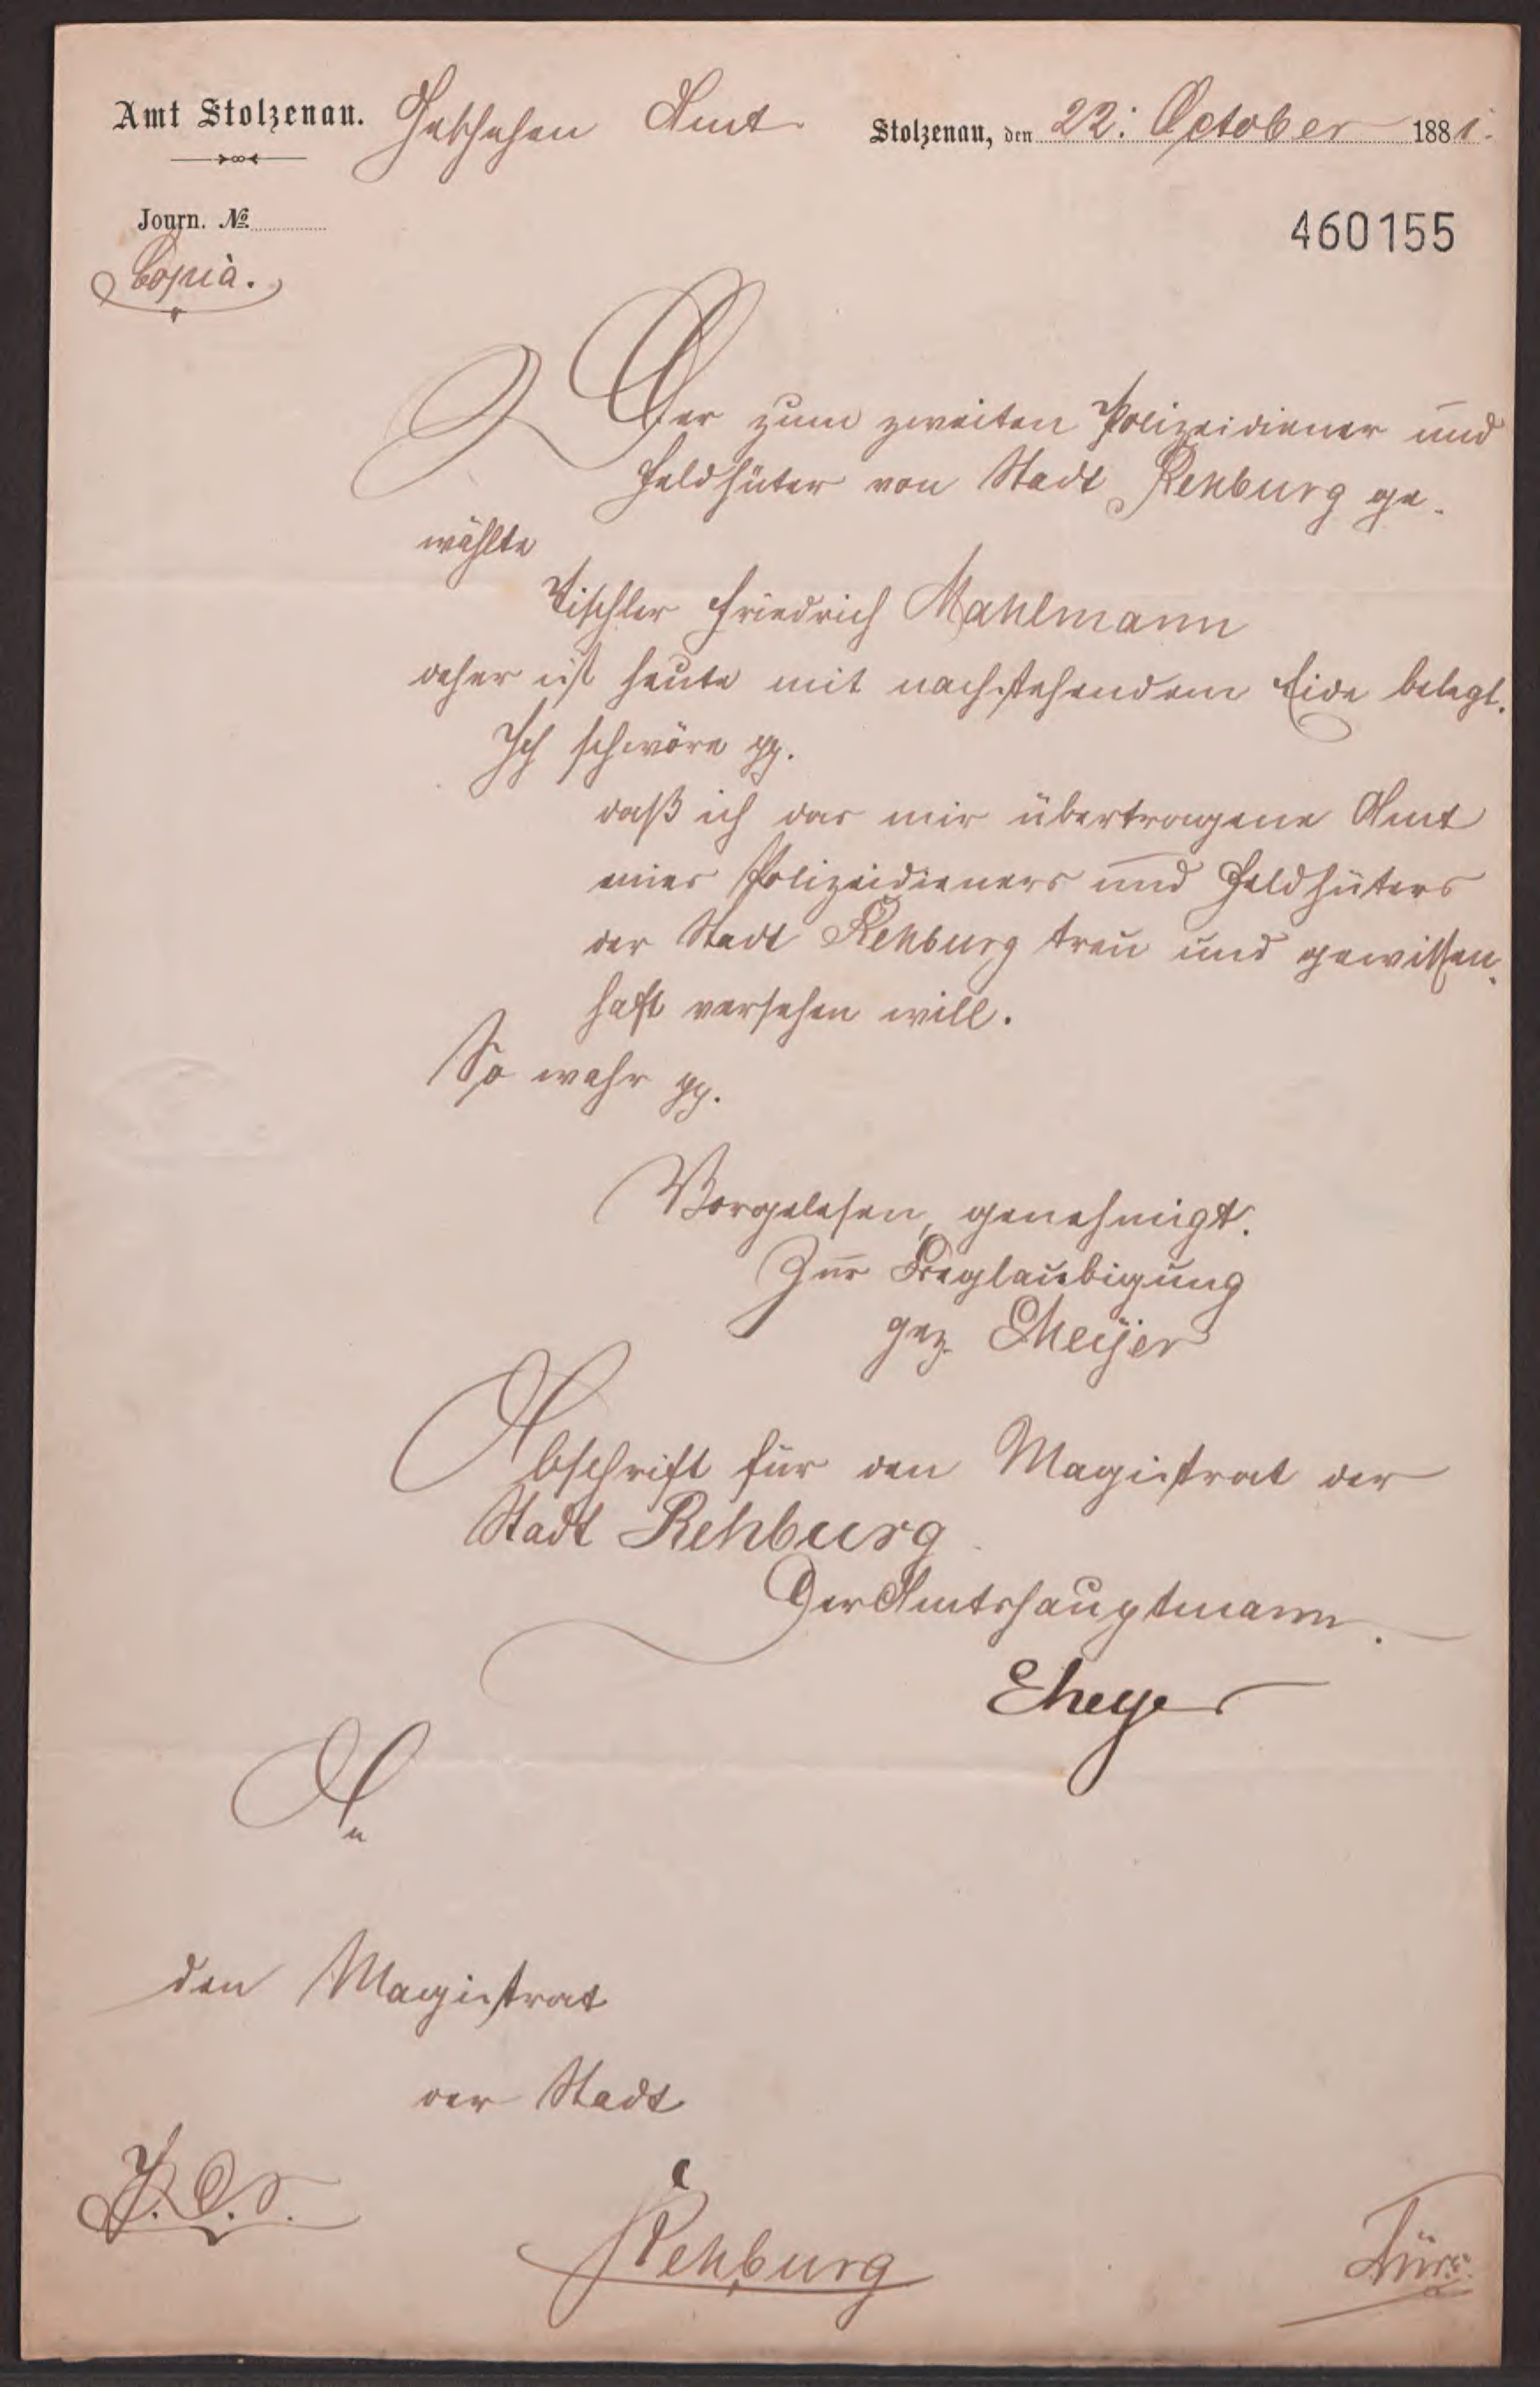 Amt Stolzenau. Geschehen Amt Stolzenau, den 22. October 1881.
Journ. №
460155
Copia.
Der zum zweiten Polizeidiener und
Feldhüter von Stadt Rehburg ge-
wählte
Tischler Friedrich Mahlmann
daher ist heute mit nachstehendem Eide belegt.
Ich schwöre pp.
daß ich das mir übertragene Amt
eines Polizeidieners und Feldhüters
der Stadt Rehburg treu und gewissen-
haft versehen will.
So wahr pp.
Vorgelesen, genehmigt.
Zur Beglaubigung
gez. EMeijer
Abschrift für den Magistrat der
Stadt Rehburg
Der Amtshauptmann.
An
den Magistrat
der Stadt
Rehburg